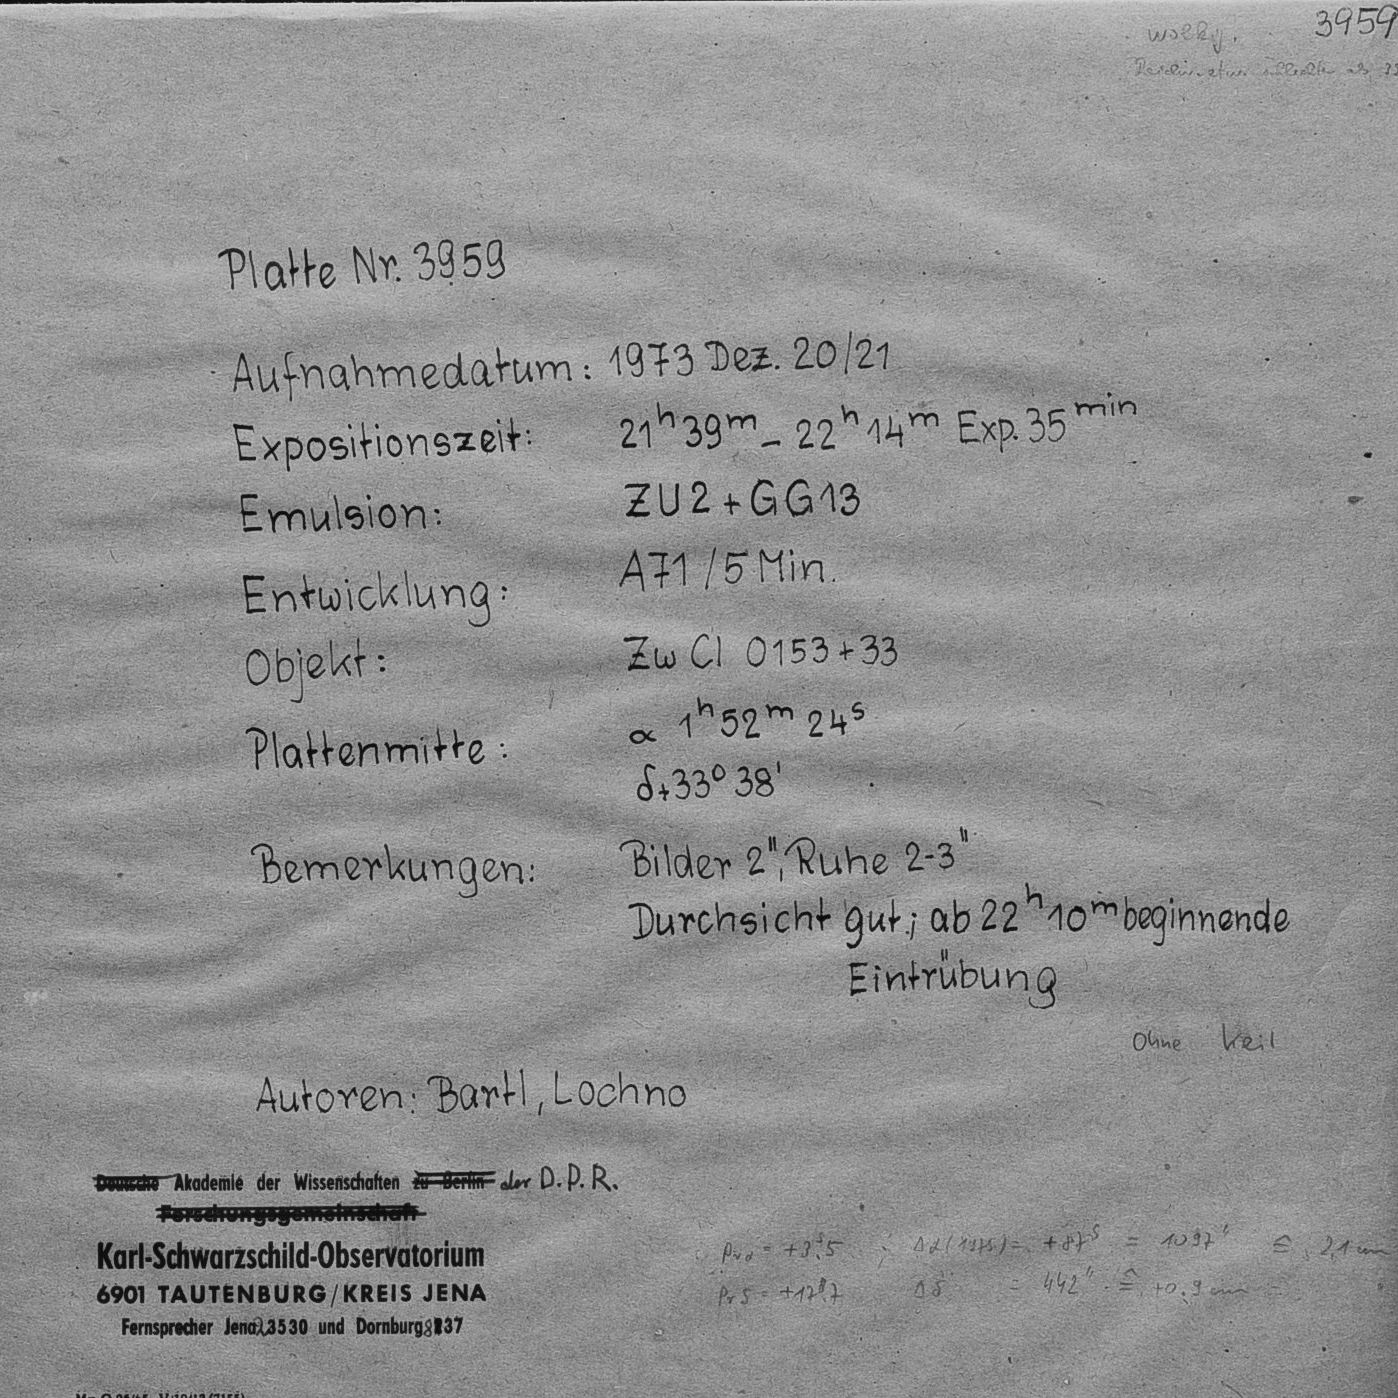 3959
wolkig.
Platte Nr. 3959
Aufnahmedatum: 1973 Dez. 20/21
Expositionszeit: 21ʰ39ᵐ – 22ʰ14ᵐ Exp. 35ᵐⁱⁿ
Emulsion: ZU2 + GG13
Entwicklung: A71 / 5 Min.
Objekt: Zw Cl 0153+33
Plattenmitte: α 1ʰ52ᵐ24ˢ
δ+33° 38'
Bemerkungen: Bilder 2", Ruhe 2-3"
Durchsicht gut; ab 22ʰ10ᵐ beginnende
Eintrübung
Ohne Keil
Autoren: Bartl, Lochno
Deutsche Akademie der Wissenschaften zu Berlin der D.D.R.
Forschungsgemeinschaft
Karl-Schwarzschild-Observatorium
6901 TAUTENBURG/KREIS JENA
Fernsprecher Jena 23530 und Dornburg 837
= +3ˢ.5 ; Δα(1975) = +87ˢ = 1097" ≙ 2,1 cm
= +17".7 Δδ = 442" ≙ +0.9 cm